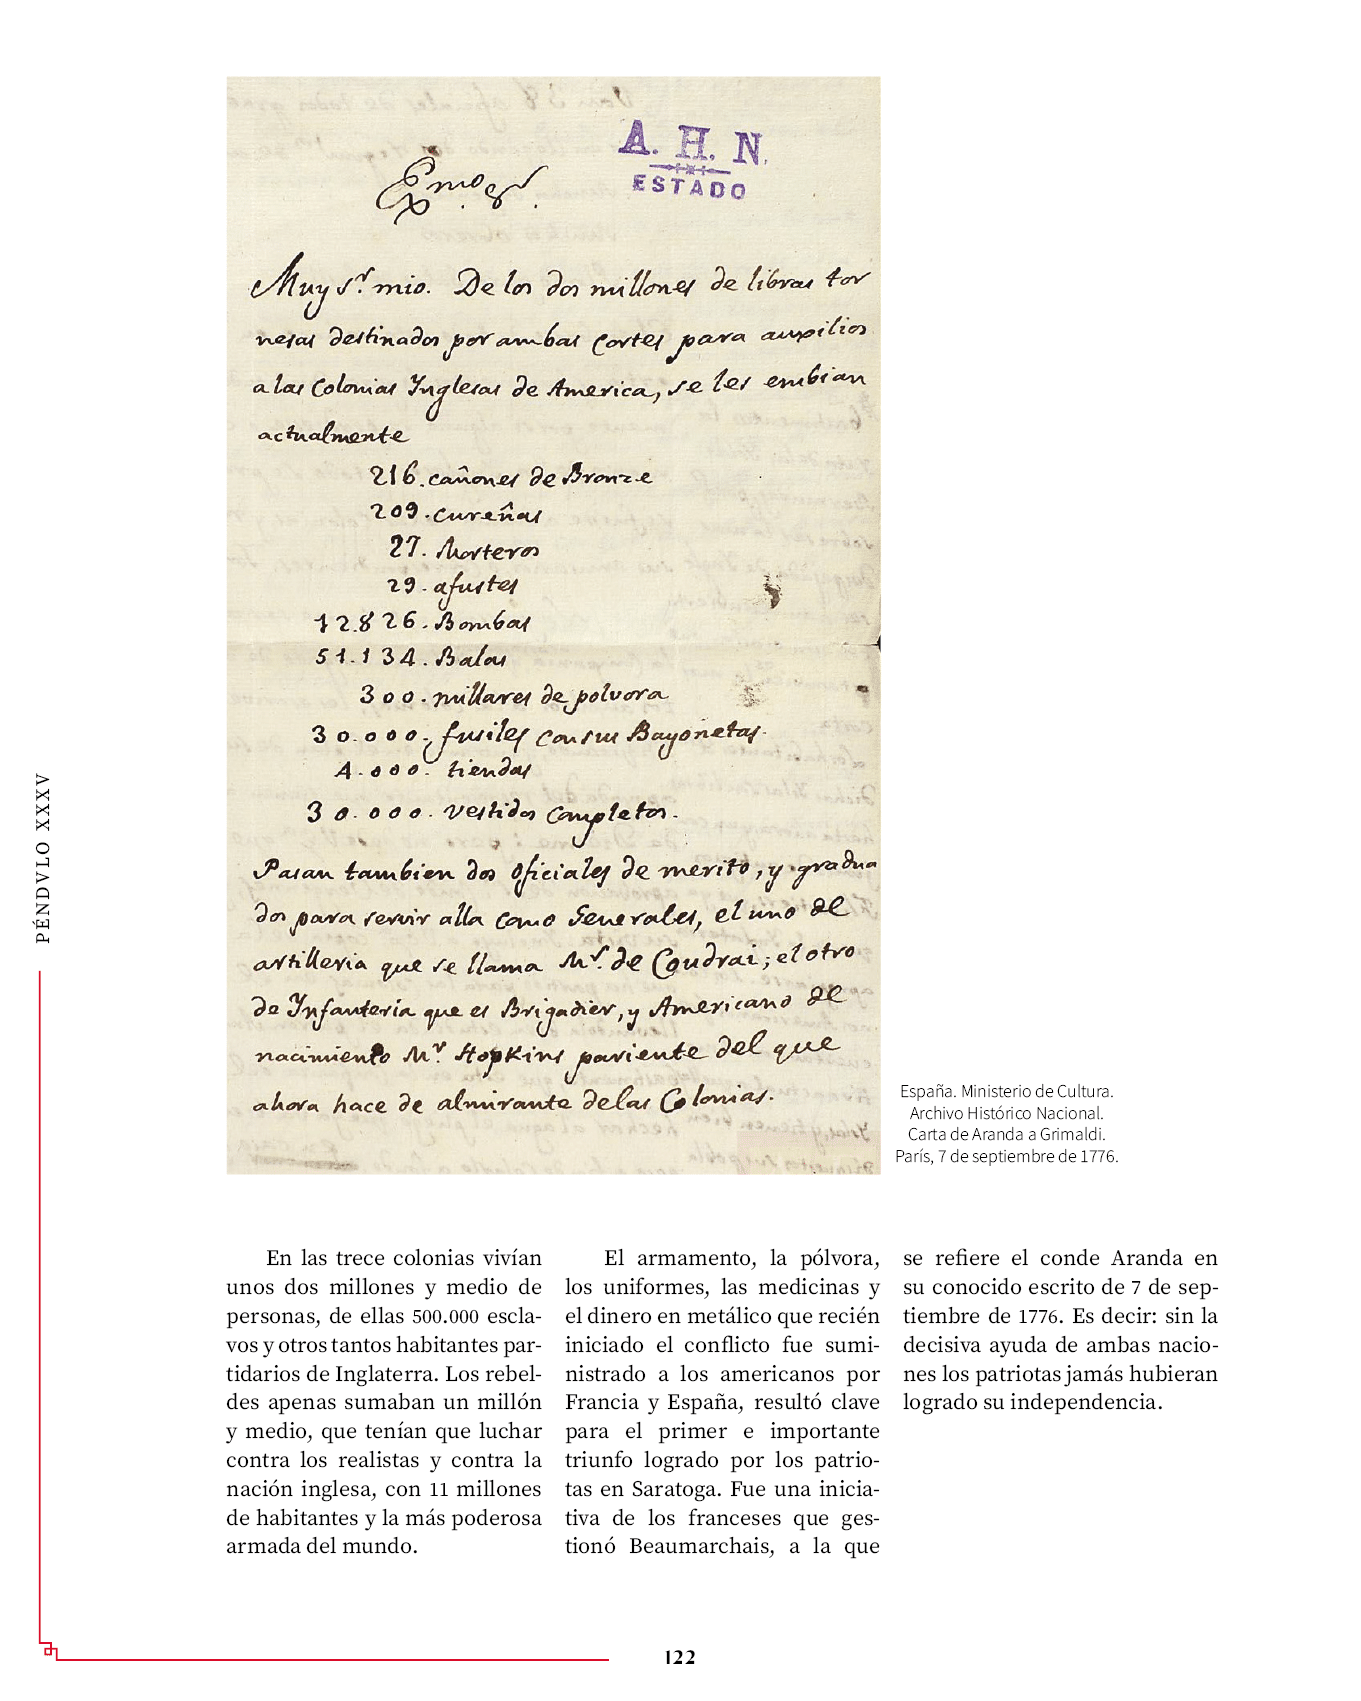 A. H. N.
ESTADO
Exmo. Sr.
Muy Sr. mio. De los dos millones de libras tor
nesas destinados por ambas Cortes para auxilios
a las Colonias Ynglesas de America, se les embian
actualmente
216. cañones de Bronze
209. cureñas
27. Morteros
29. afustes
12.826. Bombas
51.134. Balas
300. millares de polvora
30.000. fusiles con sus Bayonetas.
4.000. tiendas
30.000. vestidos completos.
Pasan tambien dos oficiales de merito, y gradua
dos para servir alla como Generales, el uno de
artilleria que se llama Mr. de Coudrai; el otro
de Ynfantería que es Brigadier, y Americano de
nacimiento Mr. Hopkins pariente del que
ahora hace de almirante de las Colonias.
España. Ministerio de Cultura.
Archivo Histórico Nacional.
Carta de Aranda a Grimaldi.
París, 7 de septiembre de 1776.
PÉNDVLO XXXV
En las trece colonias vivían
unos dos millones y medio de
personas, de ellas 500.000 escla-
vos y otros tantos habitantes par-
tidarios de Inglaterra. Los rebel-
des apenas sumaban un millón
y medio, que tenían que luchar
contra los realistas y contra la
nación inglesa, con 11 millones
de habitantes y la más poderosa
armada del mundo.
El armamento, la pólvora,
los uniformes, las medicinas y
el dinero en metálico que recién
iniciado el conflicto fue sumi-
nistrado a los americanos por
Francia y España, resultó clave
para el primer e importante
triunfo logrado por los patrio-
tas en Saratoga. Fue una inicia-
tiva de los franceses que ges-
tionó Beaumarchais, a la que
se refiere el conde Aranda en
su conocido escrito de 7 de sep-
tiembre de 1776. Es decir: sin la
decisiva ayuda de ambas nacio-
nes los patriotas jamás hubieran
logrado su independencia.
122